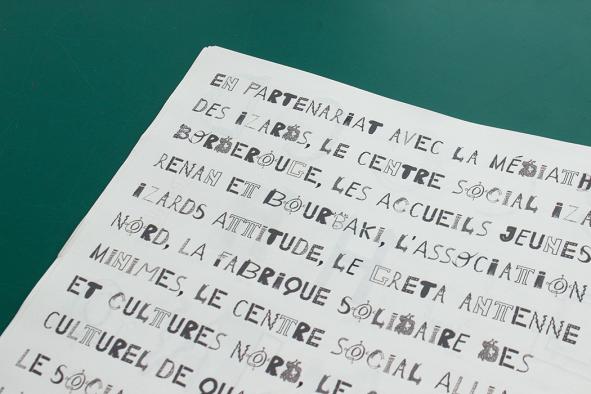 EN PARTENARIAT AVEC LA MÉDIATH
DES IZARDS, LE CENTRE SOCIAL IZA
BORDEROUGE, LES ACCUEILS JEUNES
RENAN ET BOURBAKI, L'ASSOCIATION
IZARDS ATTITUDE, LE GRETA ANTENNE
NORD, LA FABRIQUE SOLIDAIRE DES
MINIMES, LE CENTRE SOCIAL ALLIA
ET CULTURES NORD, LE C
CULTUREL DE QUA
LE SOCIA